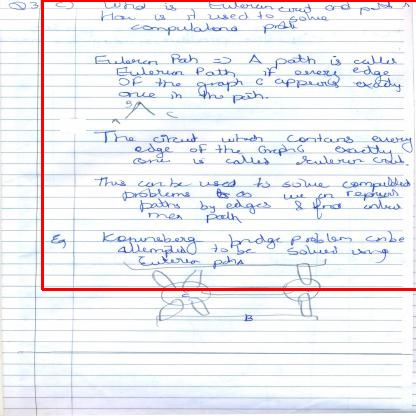 Q3 c) What is Eulerian circuit and path
How is it used to solve
computational prob
Eulerian Path => A path is called
Eulerian Path if every edge
of the graph G appears exactly
once in the path.
B
A C
The circuit which contains every
edge of the Graph G exactly
one is called Eulerian
This can be used to solve
problems as we can represent
paths by edges &
path
Eg Koninsberg bridge problem can be
attempted to be solved using
Eulerian path
C
B